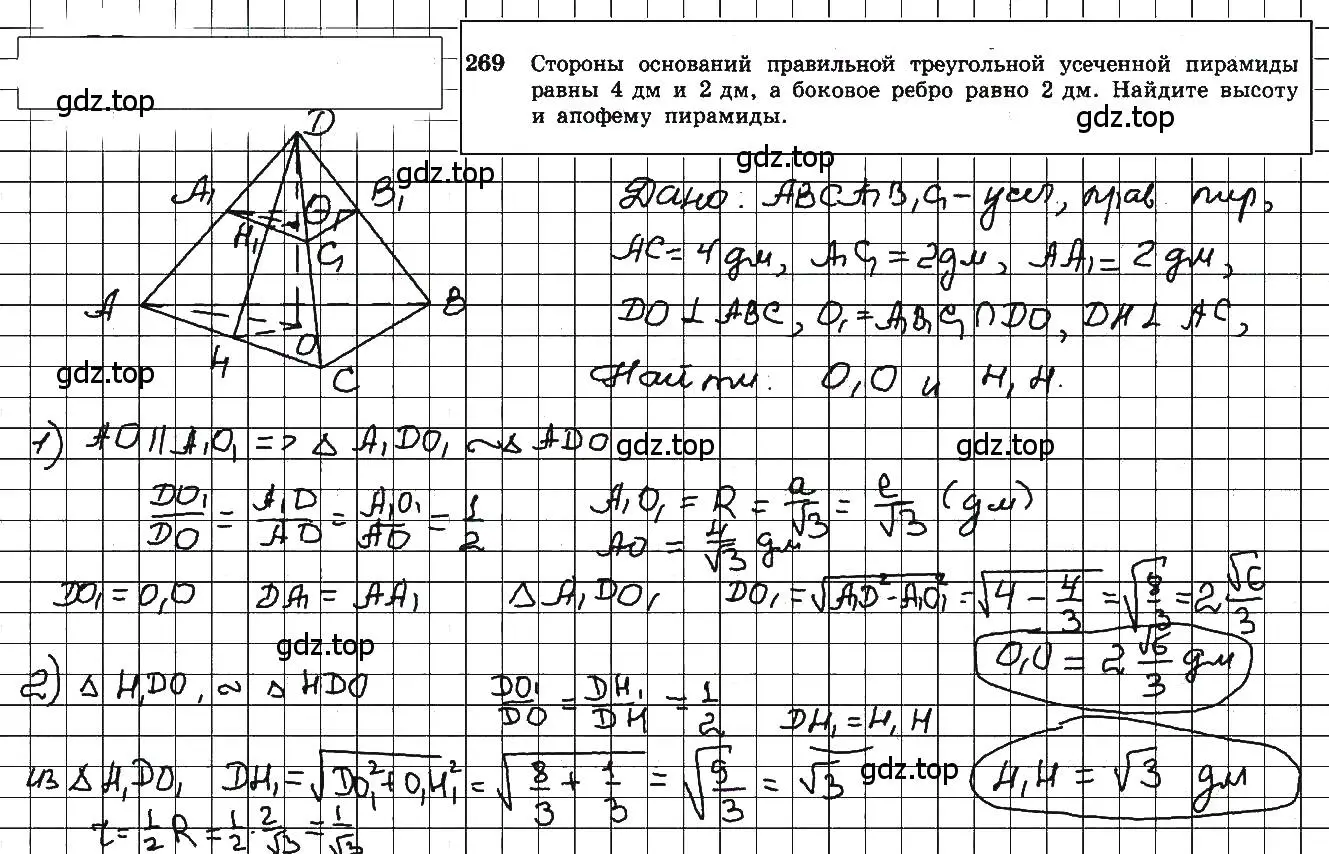 269 Стороны оснований правильной треугольной усеченной пирамиды
равны 4 дм и 2 дм, а боковое ребро равно 2 дм. Найдите высоту
и апофему пирамиды.
gdz.top
gdz.top
gdz.top
gdz.top
D
A₁ B₁ O₁ H₁ C₁
A B H O C
Дано: ABCA₁B₁C₁ - усеч, прав пир,
AC = 4 дм, A₁C₁ = 2 дм, AA₁ = 2 дм,
DO ⊥ ABC, O₁ = A₁B₁C₁ ∩ DO, DH ⊥ AC,
gdz.top
Найти: O₁O и H₁H.
1) AO || A₁O₁ => △ A₁DO₁ ~ △ ADO
gdz.top
gdz.top
DO₁/DO = A₁D/AD = A₁O₁/AO = 1/2 A₁O₁ = R = a/√3 = 2/√3 (дм)
AO = 4/√3 дм
DO₁ = O₁O DA₁ = AA₁ △ A₁DO₁ DO₁ = √(A₁D² - A₁O₁²) = √(4 - 4/3) = √(8/3) = 2√6/3
gdz.top
O₁O = 2√6/3 дм
2) △ H₁DO₁ ~ △ HDO DO₁/DO = DH₁/DH = 1/2 DH₁ = H₁H
из △ H₁DO₁ DH₁ = √(DO₁² + O₁H₁²) = √(8/3 + 1/3) = √(9/3) = √3
gdz.top
H₁H = √3 дм
r = 1/2 R = 1/2 · 2/√3 = 1/√3